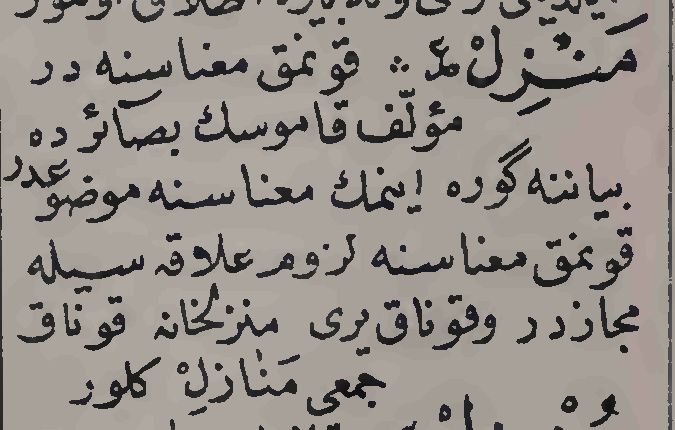 مَنْزِلْ ع قونمق معناسنه در
مؤلّف قاموسك بصائرده
بياننه گوره اينمك معناسنه موضوعدر
قونمق معناسنه لزوم علاقه سيله
مجازدر وقوناق يرى منزلخانه قوناق
جمعى مَنَازِلْ كلور